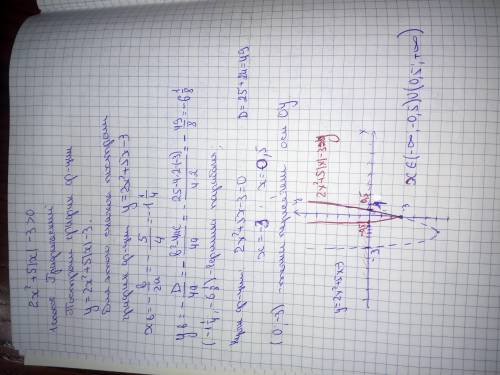 2x²+5|x|-3>0
Построим график ф-ции
y=2x²+5|x|-3
Для этого сначала построим
график ф-ции y=2x²+5x-3
xв=-b/2a=-5/4=-1 1/4
yв=-D/4a=-b²-4ac/4a=-25-4·2·(-3)/4·2=-49/8=-6 1/8
(-1 1/4, -6 1/8)-вершина параболы;
Нули ф-ции: 2x²+5x-3=0 D=25+24=49
x=-3 x=0,5
(0;-3) -точка пересечения оси Oy.
y=2x²+5x-3
2x²+5|x|-3
y
x
-3
-0,5
0,5
-3
x∈(-∞,-0,5)∪(0,5,+∞)